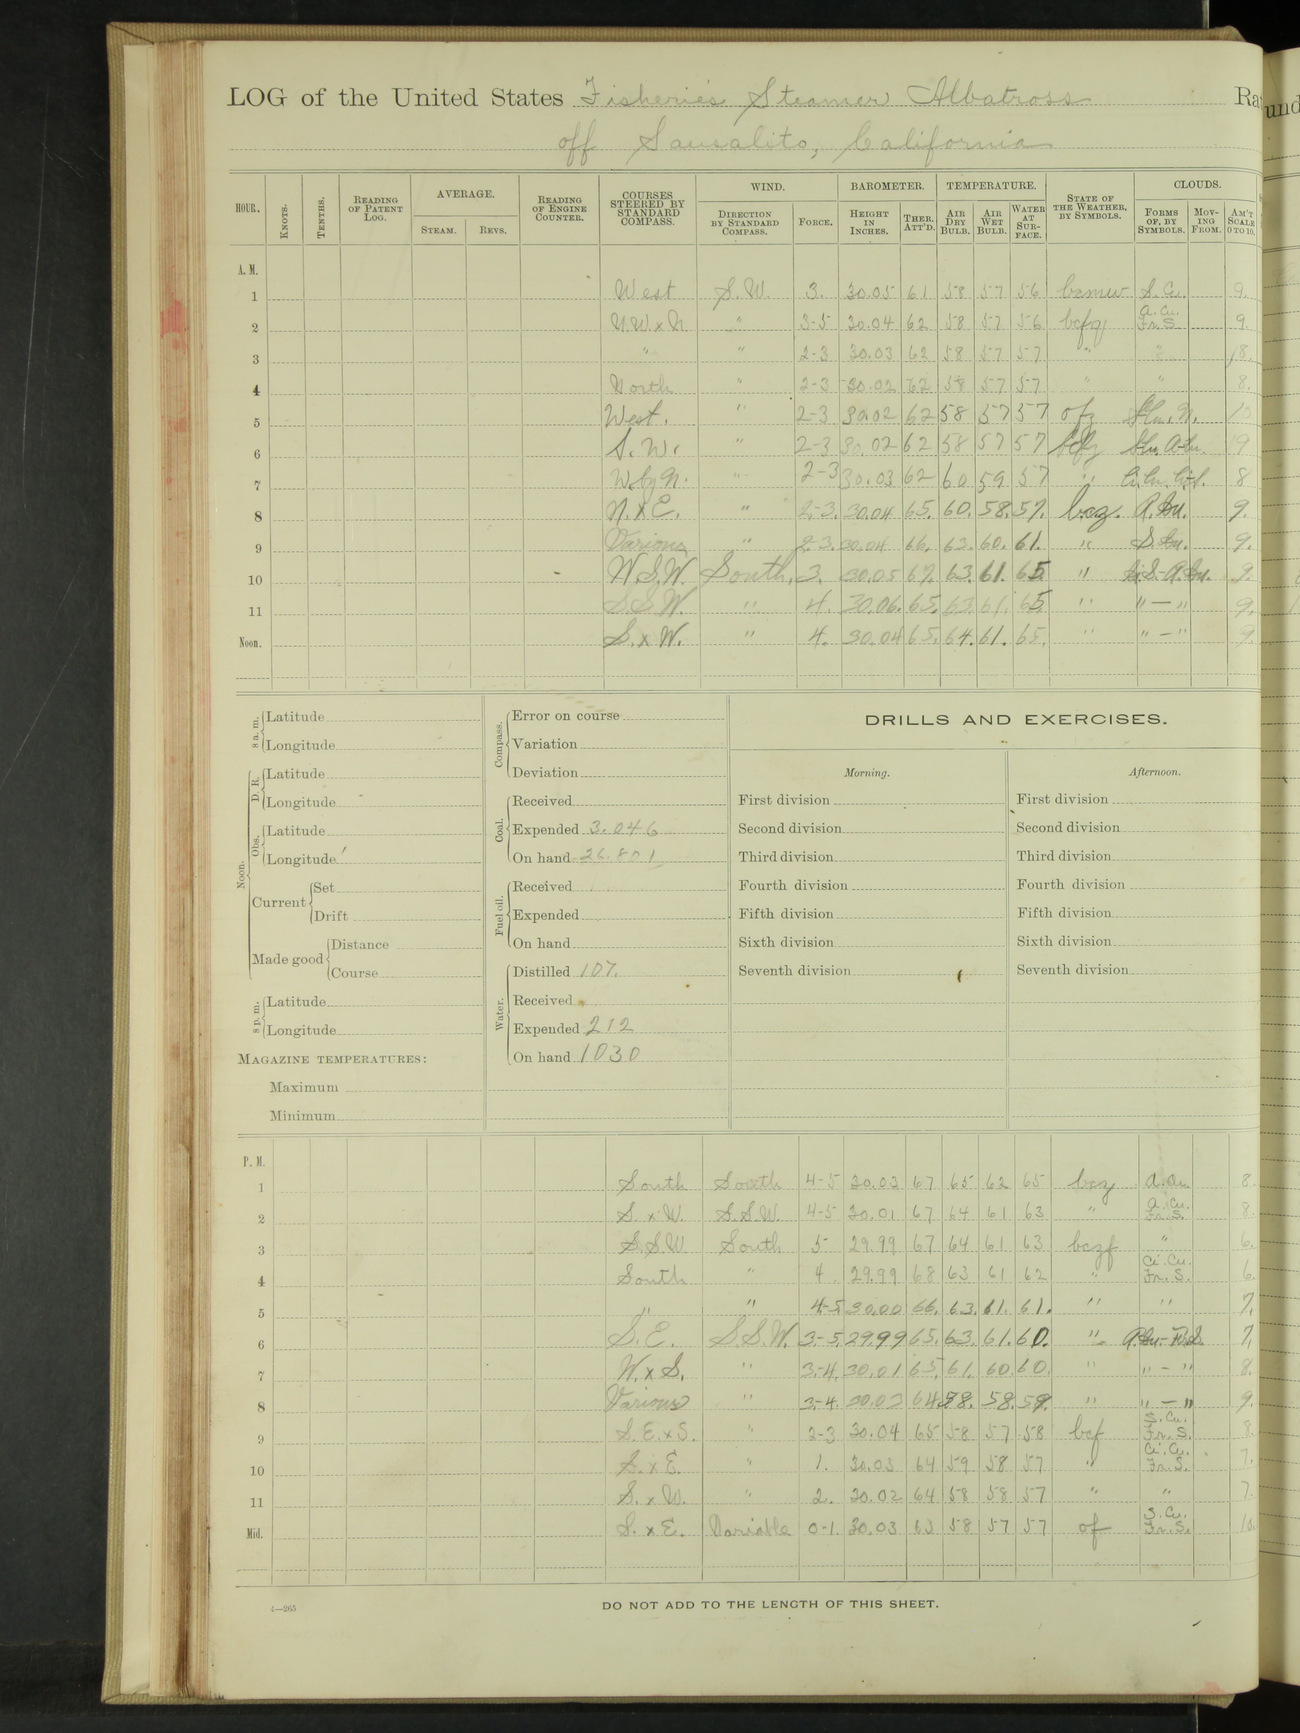 LOG of the United States Fisheries Steamer Albatross Ra
und
off Sausalito, California
HOUR. KNOTS. TENTHS. READING OF PATENT LOG. AVERAGE. STEAM. REVS. READING OF ENGINE COUNTER. COURSES STEERED BY STANDARD COMPASS. WIND. DIRECTION BY STANDARD COMPASS. FORCE. BAROMETER. HEIGHT IN INCHES. THER. ATT'D. TEMPERATURE. AIR DRY BULB. AIR WET BULB. WATER AT SURFACE. STATE OF THE WEATHER, BY SYMBOLS. CLOUDS. FORMS OF, BY SYMBOLS. MOVING FROM. AM'T SCALE 0 TO 10.
A. M.
1 West S.W. 3. 30.05 61 58 57 56 S. Cu. 9.
2 N.W. x N. " 3-5 30.04 62 58 57 56 A. Cu. Fr. S. 9.
3 " " 2-3 30.03 62 58 57 57 " " 8.
4 North " 2-3 30.02 62 58 57 57 " " 8.
5 West. " 2-3 30.02 62 58 57 57 ofz 10
6 S. W. " 2-3 30.02 62 58 57 57 9
7 W. by N. " 2-3 30.03 62 60 59 57 " 8
8 N. x E. " 2-3. 30.04 65. 60. 58. 57. bcz. A. Cu. 9.
9 Various " 2-3. 30.04 66. 63. 60. 61. " S. Cu. 9.
10 W.S.W. South. 3. 30.05 67. 63. 61. 65 " 9.
11 S.S.W. " 4. 30.06. 65. 63. 61. 65 " " — " 9.
Noon. S. x W. " 4. 30.04 65. 64. 61. 65. " " — " 9.
8 a. m. Latitude
Longitude
Noon. D. R. Latitude
Longitude
Obs. Latitude
Longitude
Current Set
Drift
Made good Distance
Course
8 p. m. Latitude
Longitude
MAGAZINE TEMPERATURES:
Maximum
Minimum
Compass. Error on course
Variation
Deviation
Coal. Received
Expended 3.046
On hand 26.801
Fuel oil. Received
Expended
On hand
Water. Distilled 107.
Received
Expended 212
On hand 1030
DRILLS AND EXERCISES.
Morning. Afternoon.
First division First division
Second division Second division
Third division Third division
Fourth division Fourth division
Fifth division Fifth division
Sixth division Sixth division
Seventh division Seventh division
P. M.
1 South South 4-5 30.03 67 65 62 65 bcz A. Cu. 8.
2 S. x W. S.S.W. 4-5 30.01 67 64 61 63 " A. Cu. Fr. S. 8.
3 S.S.W South 5 29.99 67 64 61 63 bczf " 6.
4 South " 4 29.99 68 63 61 62 " Ci. Cu. Fr. S. 6.
5 " " 4-5 30.00 66. 63. 61. 61. " " 7.
6 S. E. S.S.W. 3-5. 29.99 65. 63. 61. 60. " A. Cu.- Fr. S. 7.
7 W. x S. " 3-4. 30.01 65. 61. 60. 60. " " — " 8.
8 Various " 3-4. 30.03 64. 58. 58. 59. " " — " 9.
9 S.E. x S. " 2-3 30.04 65 58 57 58 bcf S. Cu. Fr. S. 8.
10 S. x E. " 1. 30.03 64 59 58 57 " Ci. Cu. Fr. S. 7.
11 S. x W. " 2. 30.02 64 58 58 57 " " 7.
Mid. S. x E. Variable 0-1. 30.03 63 58 57 57 of S. Cu. Fr. S. 10.
4—265
DO NOT ADD TO THE LENGTH OF THIS SHEET.